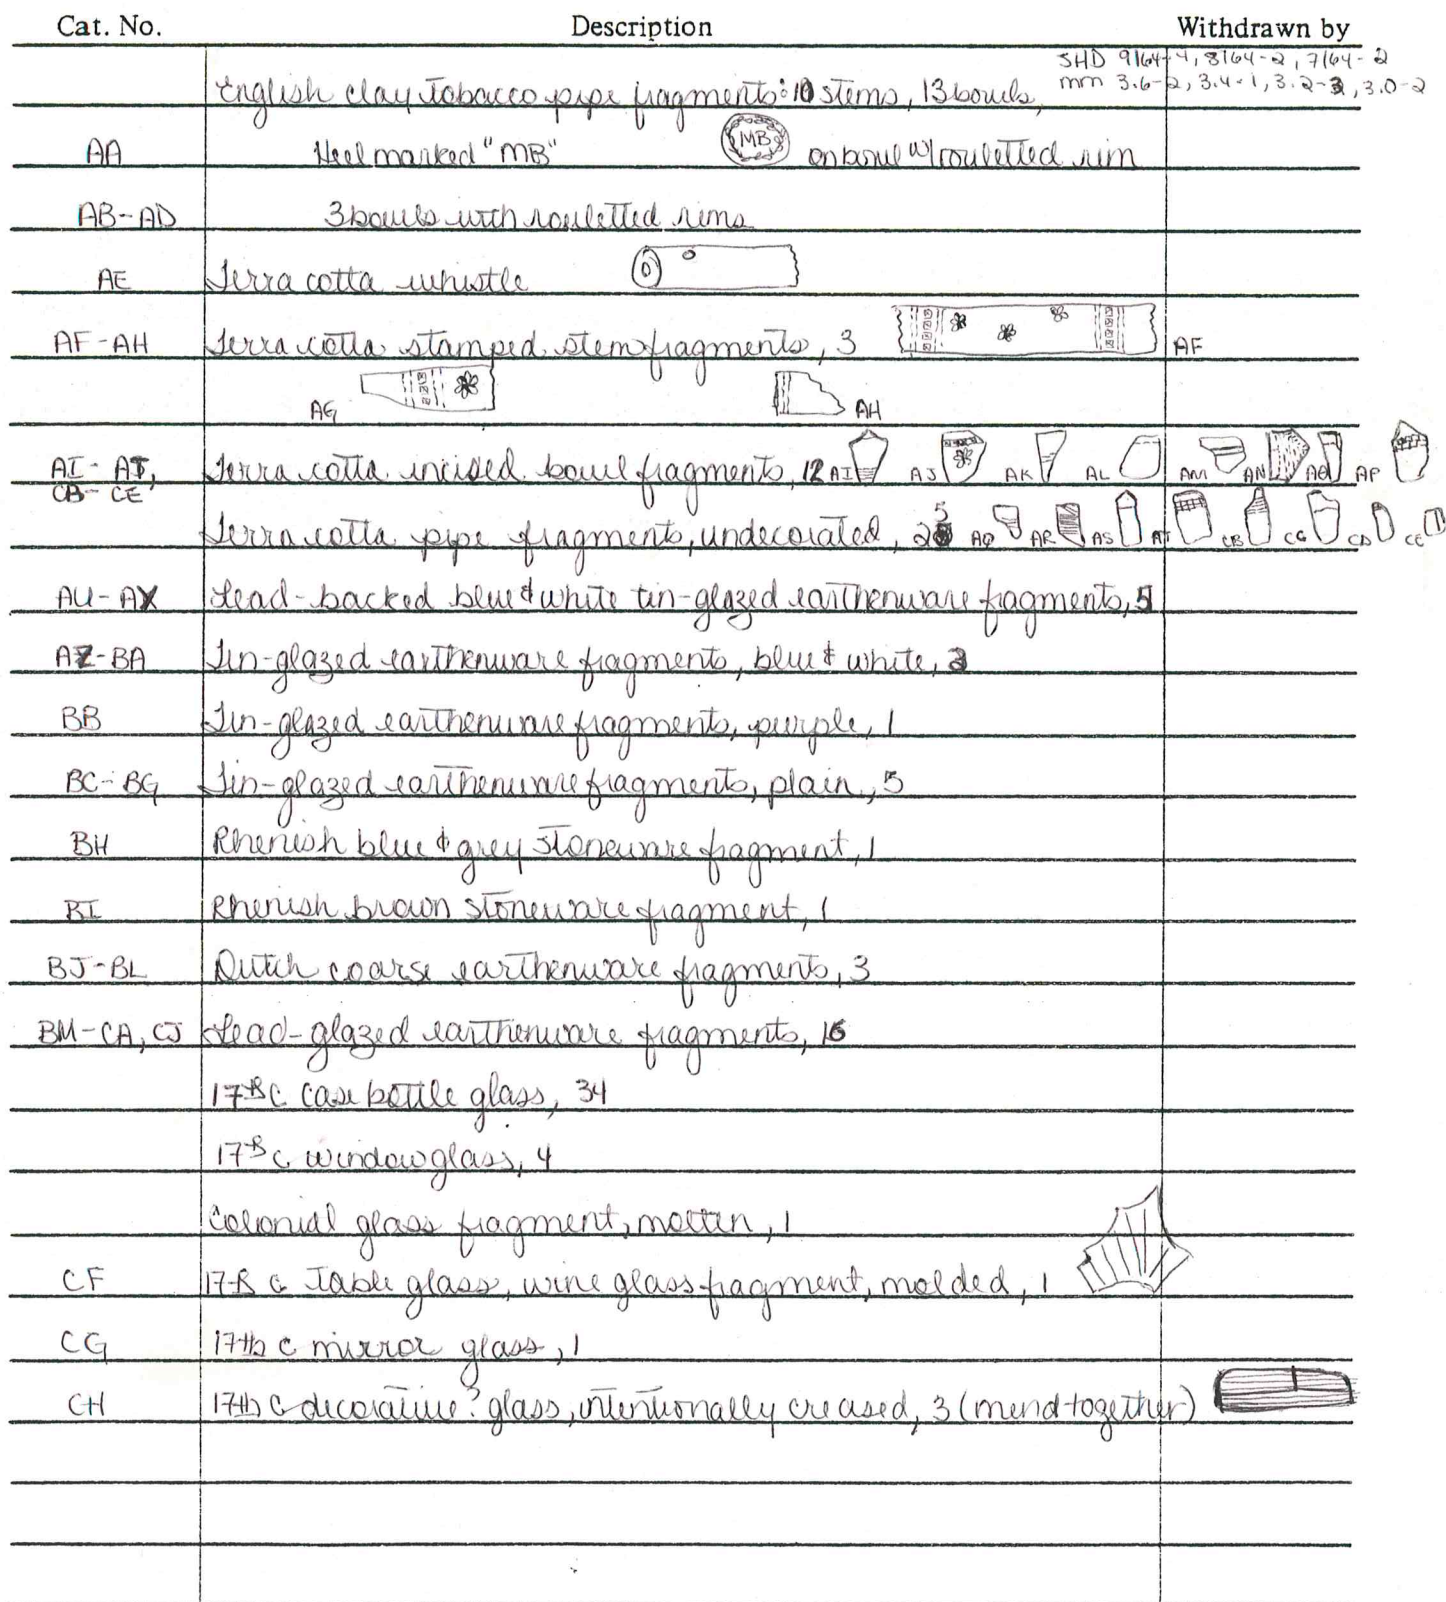 Cat. No. Description Withdrawn by
SHD 9/64-4, 8/64-2, 7/64-2
English clay tobacco pipe fragments: 10 stems, 13 bowls, mm 3.6-2, 3.4-1, 3.2-3, 3.0-2
AA Heel marked "MB" MB on bowl w/rouletted rim
AB-AD 3 bowls with rouletted rims
AE Terra cotta whistle
AF-AH Terra cotta stamped stem fragments, 3 AF
AG AH
AI-AT, Terra cotta incised bowl fragments, 12 AI AJ AK AL AM AN AO AP
CB-CE
Terra cotta pipe fragments, undecorated, 25 AQ AR AS AT CB CC CD CE
AU-AY Lead-backed blue & white tin-glazed earthenware fragments, 5
AZ-BA Tin-glazed earthenware fragments, blue & white, 2
BB Tin-glazed earthenware fragments, purple, 1
BC-BG Tin-glazed earthenware fragments, plain, 5
BH Rhenish blue & grey stoneware fragment, 1
BI Rhenish brown stoneware fragment, 1
BJ-BL Dutch coarse earthenware fragments, 3
BM-CA, CJ Lead-glazed earthenware fragments, 16
17th C case bottle glass, 34
17th c window glass, 4
Colonial glass fragment, molten, 1
CF 17th c table glass, wine glass fragment, molded, 1
CG 17th c mirror glass, 1
CH 17th c decorative? glass, intentionally creased, 3 (mend together)